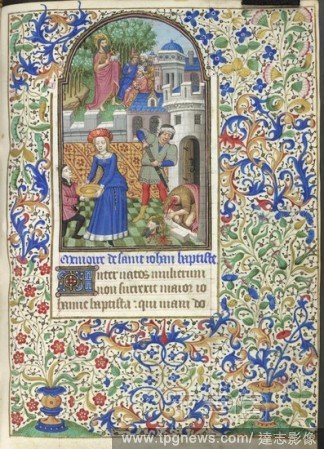 Memoire de saint iohan baptiste
Inter natos mulierum
non surrexit maior io
hanne baptista : qui viam do
www.ipgnews.com/ 達志影像